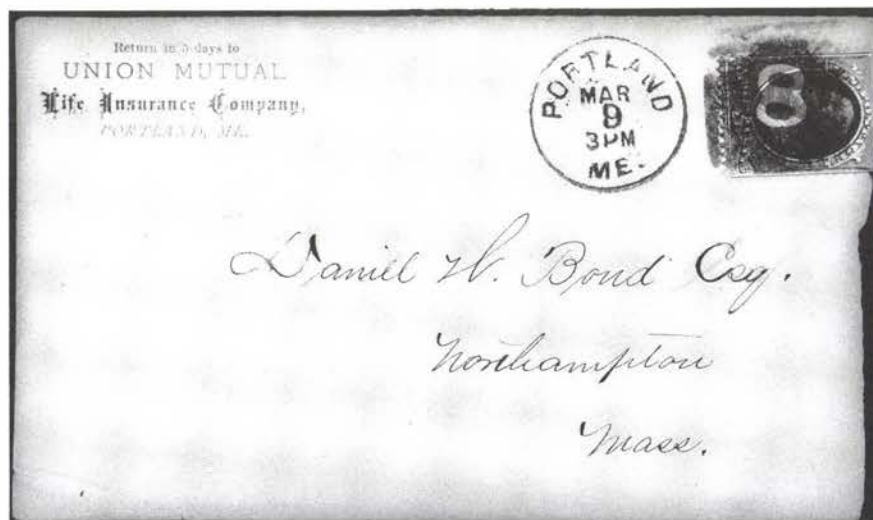 Return in 5 days to
UNION MUTUAL
Life Insurance Company,
PORTLAND, ME.
PORTLAND
MAR
9
3PM
ME.
8
Daniel W. Bond Esq.
Northampton
Mass.